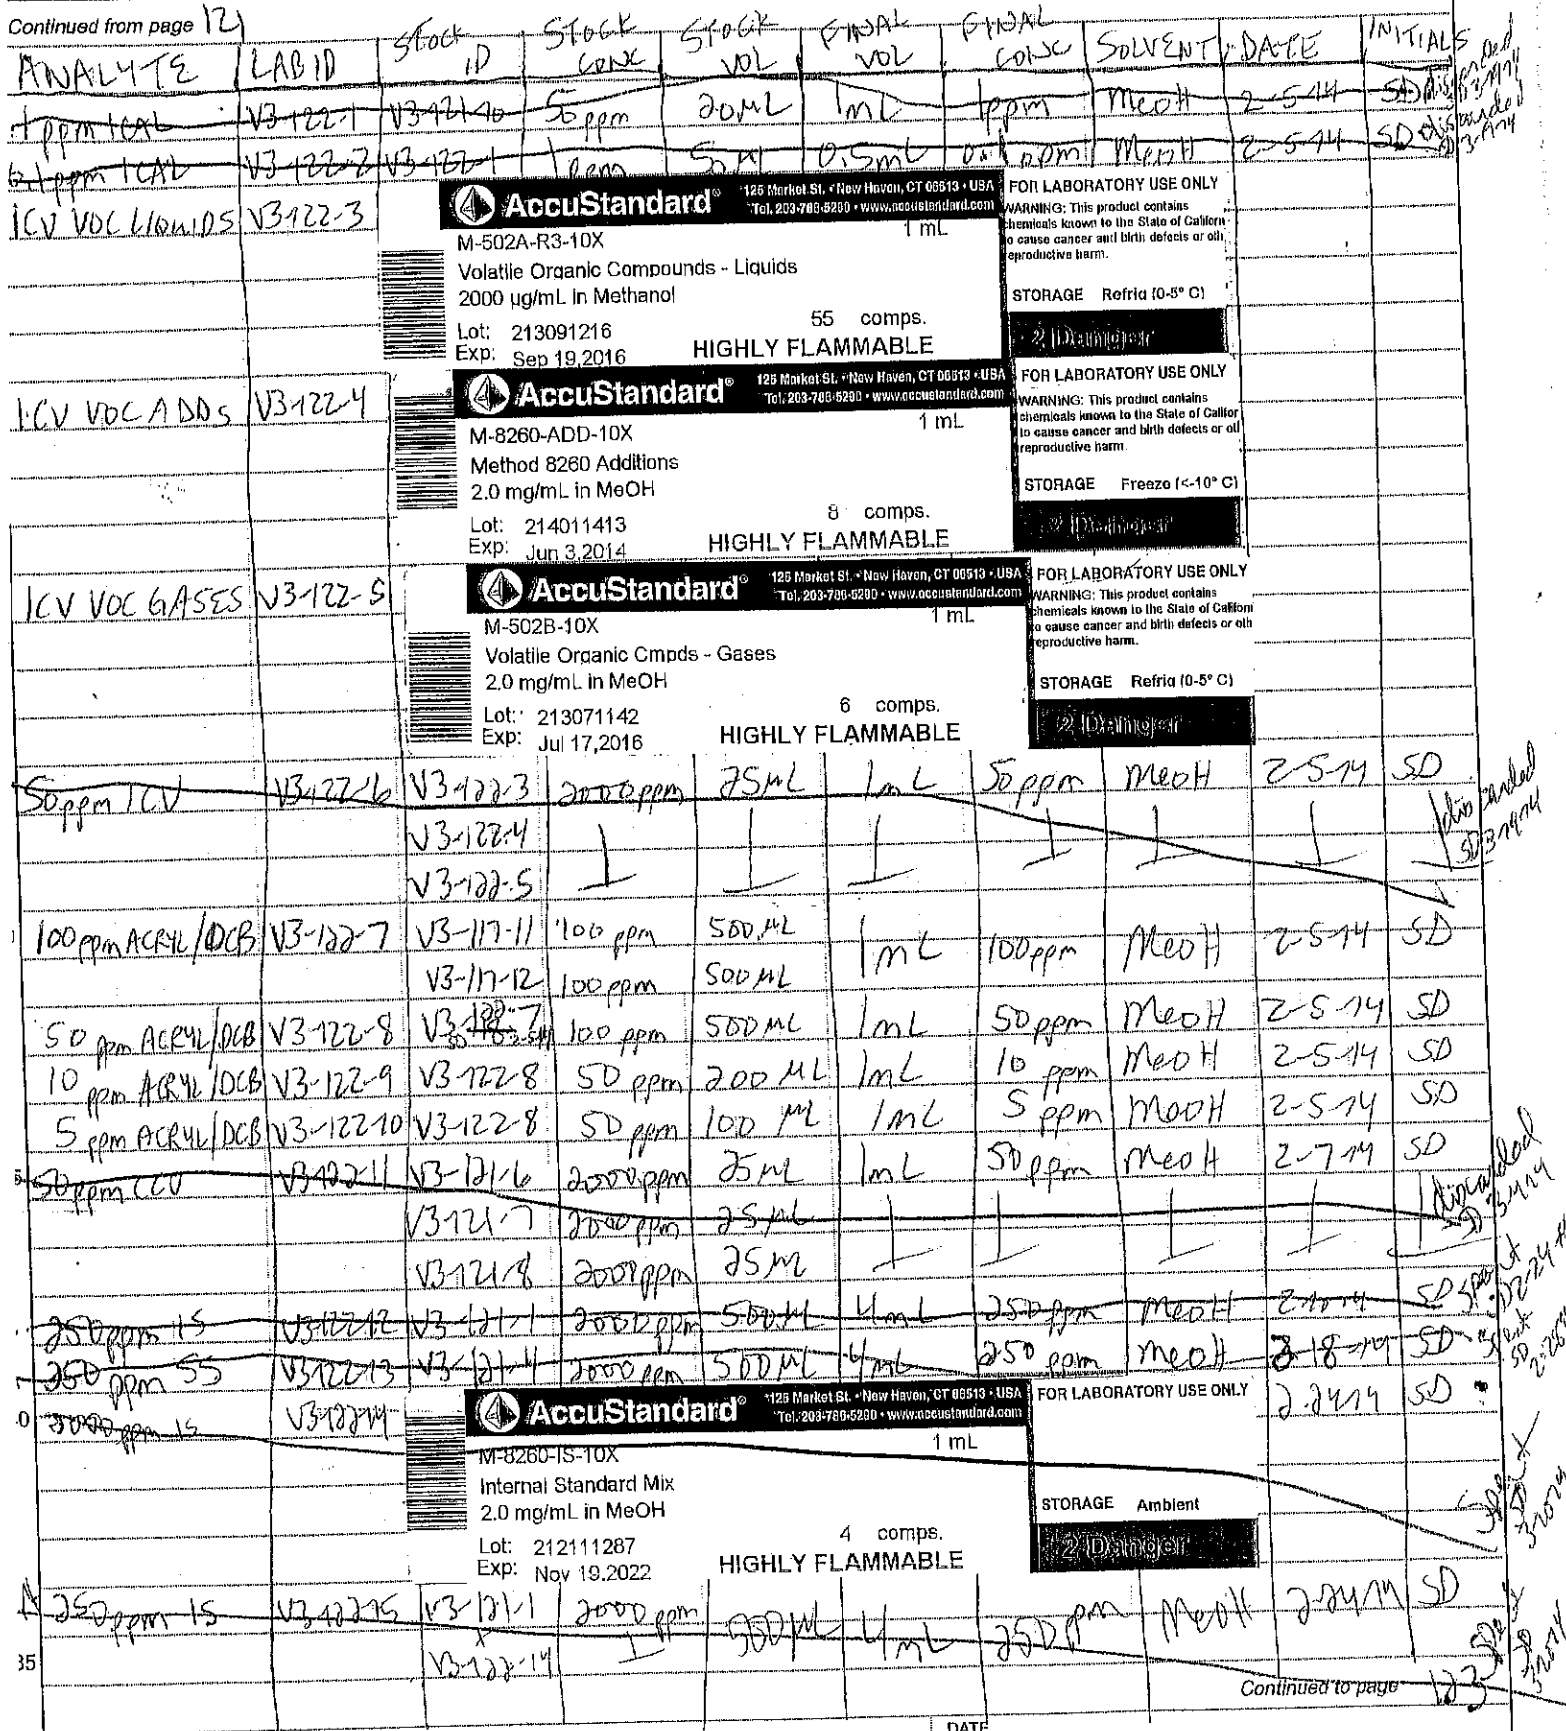 Continued from page 121
ANALYTE LAB ID Stock ID STOCK CONC STOCK VOL FINAL VOL FINAL CONC SOLVENT DATE INITIALS
1 ppm ICAL V3-122-1 V3-121-10 50 ppm 20 µL 1 mL 1 ppm MeOH 2-5-14 SD discarded
0.1 ppm ICAL V3-122-2 V3-122-1 1 ppm 50 µL 0.5mL 0.1 ppm MeOH 2-5-14 SD discarded
ICV VOC LIQUIDS V3-122-3
AccuStandard® 125 Market St. • New Haven, CT 06513 • USA
Tel. 203-786-5290 • www.accustandard.com
M-502A-R3-10X 1 mL
Volatile Organic Compounds - Liquids
2000 µg/mL in Methanol
55 comps.
Lot: 213091216
Exp: Sep 19,2016 HIGHLY FLAMMABLE
FOR LABORATORY USE ONLY
WARNING: This product contains
chemicals known to the State of Californ
to cause cancer and birth defects or oth
reproductive harm.
STORAGE Refrig (0-5° C)
2 Danger
ICV VOC ADDs V3-122-4
AccuStandard® 125 Market St. • New Haven, CT 06513 • USA
Tel. 203-786-5290 • www.accustandard.com
M-8260-ADD-10X 1 mL
Method 8260 Additions
2.0 mg/mL in MeOH
8 comps.
Lot: 214011413
Exp: Jun 3,2014 HIGHLY FLAMMABLE
FOR LABORATORY USE ONLY
WARNING: This product contains
chemicals known to the State of Califor
to cause cancer and birth defects or oth
reproductive harm.
STORAGE Freeze (<-10° C)
2 Danger
ICV VOC GASES V3-122-5
AccuStandard® 125 Market St. • New Haven, CT 06513 • USA
Tel. 203-786-5290 • www.accustandard.com
M-502B-10X 1 mL
Volatile Organic Cmpds - Gases
2.0 mg/mL in MeOH
6 comps.
Lot: 213071142
Exp: Jul 17,2016 HIGHLY FLAMMABLE
FOR LABORATORY USE ONLY
WARNING: This product contains
chemicals known to the State of Californi
to cause cancer and birth defects or oth
reproductive harm.
STORAGE Refrig (0-5° C)
2 Danger
50 ppm ICV V3-122-6 V3-122-3 2000 ppm 25 µL 1 mL 50 ppm MeOH 2-5-14 SD
V3-122-4 discarded
V3-122-5
100 ppm ACRYL/DCB V3-122-7 V3-117-11 100 ppm 500 µL 1 mL 100 ppm MeOH 2-5-14 SD
V3-117-12 100 ppm 500 µL
50 ppm ACRYL/DCB V3-122-8 V3-122-7 100 ppm 500 µL 1 mL 50 ppm MeOH 2-5-14 SD
10 ppm ACRYL/DCB V3-122-9 V3-122-8 50 ppm 200 µL 1 mL 10 ppm MeOH 2-5-14 SD
5 ppm ACRYL/DCB V3-122-10 V3-122-8 50 ppm 100 µL 1 mL 5 ppm MeOH 2-5-14 SD
50 ppm CCV V3-122-11 V3-121-6 2000 ppm 25 µL 1 mL 50 ppm MeOH 2-7-14 SD
V3-121-7 2000 ppm 25 µL discarded
V3-121-8 2000 ppm 25 µL
250 ppm IS V3-122-12 V3-121-1 2000 ppm 500 µL 4 mL 250 ppm MeOH SD spent
250 ppm SS V3-122-13 V3-121-4 2000 ppm 500 µL 4 mL 250 ppm MeOH 2-18-14 SD spent
2000 ppm IS V3-122-14 2-24-14 SD
AccuStandard® 125 Market St. • New Haven, CT 06513 • USA
Tel. 203-786-5290 • www.accustandard.com
M-8260-IS-10X 1 mL
Internal Standard Mix
2.0 mg/mL in MeOH
4 comps.
Lot: 212111287
Exp: Nov 19,2022 HIGHLY FLAMMABLE
FOR LABORATORY USE ONLY
STORAGE Ambient
2 Danger
Spent
250 ppm IS V3-122-15 V3-121-1 2000 ppm 500 µL 4 mL 250 ppm MeOH 2-24-14 SD
+
35 V3-122-14
Continued to page 123
DATE